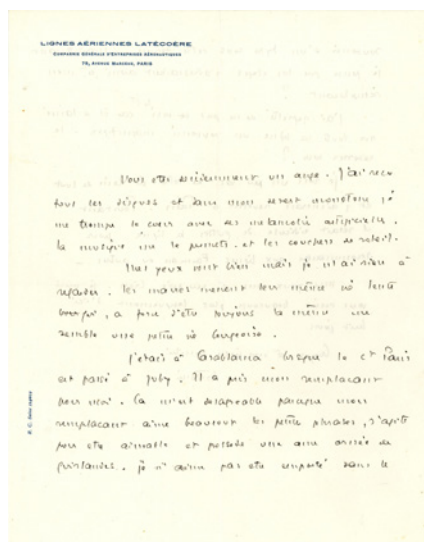 LIGNES AÉRIENNES LATÉCOÈRE
COMPAGNIE GÉNÉRALE D'ENTREPRISES AÉRONAUTIQUES
79, AVENUE MARCEAU, PARIS
Vous êtes décidément un ange. J'ai reçu
tous les disques et dans mon désert monotone je
me trompe le cœur avec des mélancolies artificielles.
la musique me le permet. et les couchers de soleil.
Mes yeux vont bien mais je n'ai rien à
regarder. les marées mènent leur même vie lente
a force d'être toujours la même me
semble une petite vie bourgeoise.
J'étais à Casablanca lorsque le Cte
est passé à Juby. Il a pris mon remplaçant
pour moi. Ca m'est désagréable parceque mon
remplaçant aime beaucoup les petites phrases, s'
pour être aimable et possède une âme
guirlandes. je n'aime pas être dans le